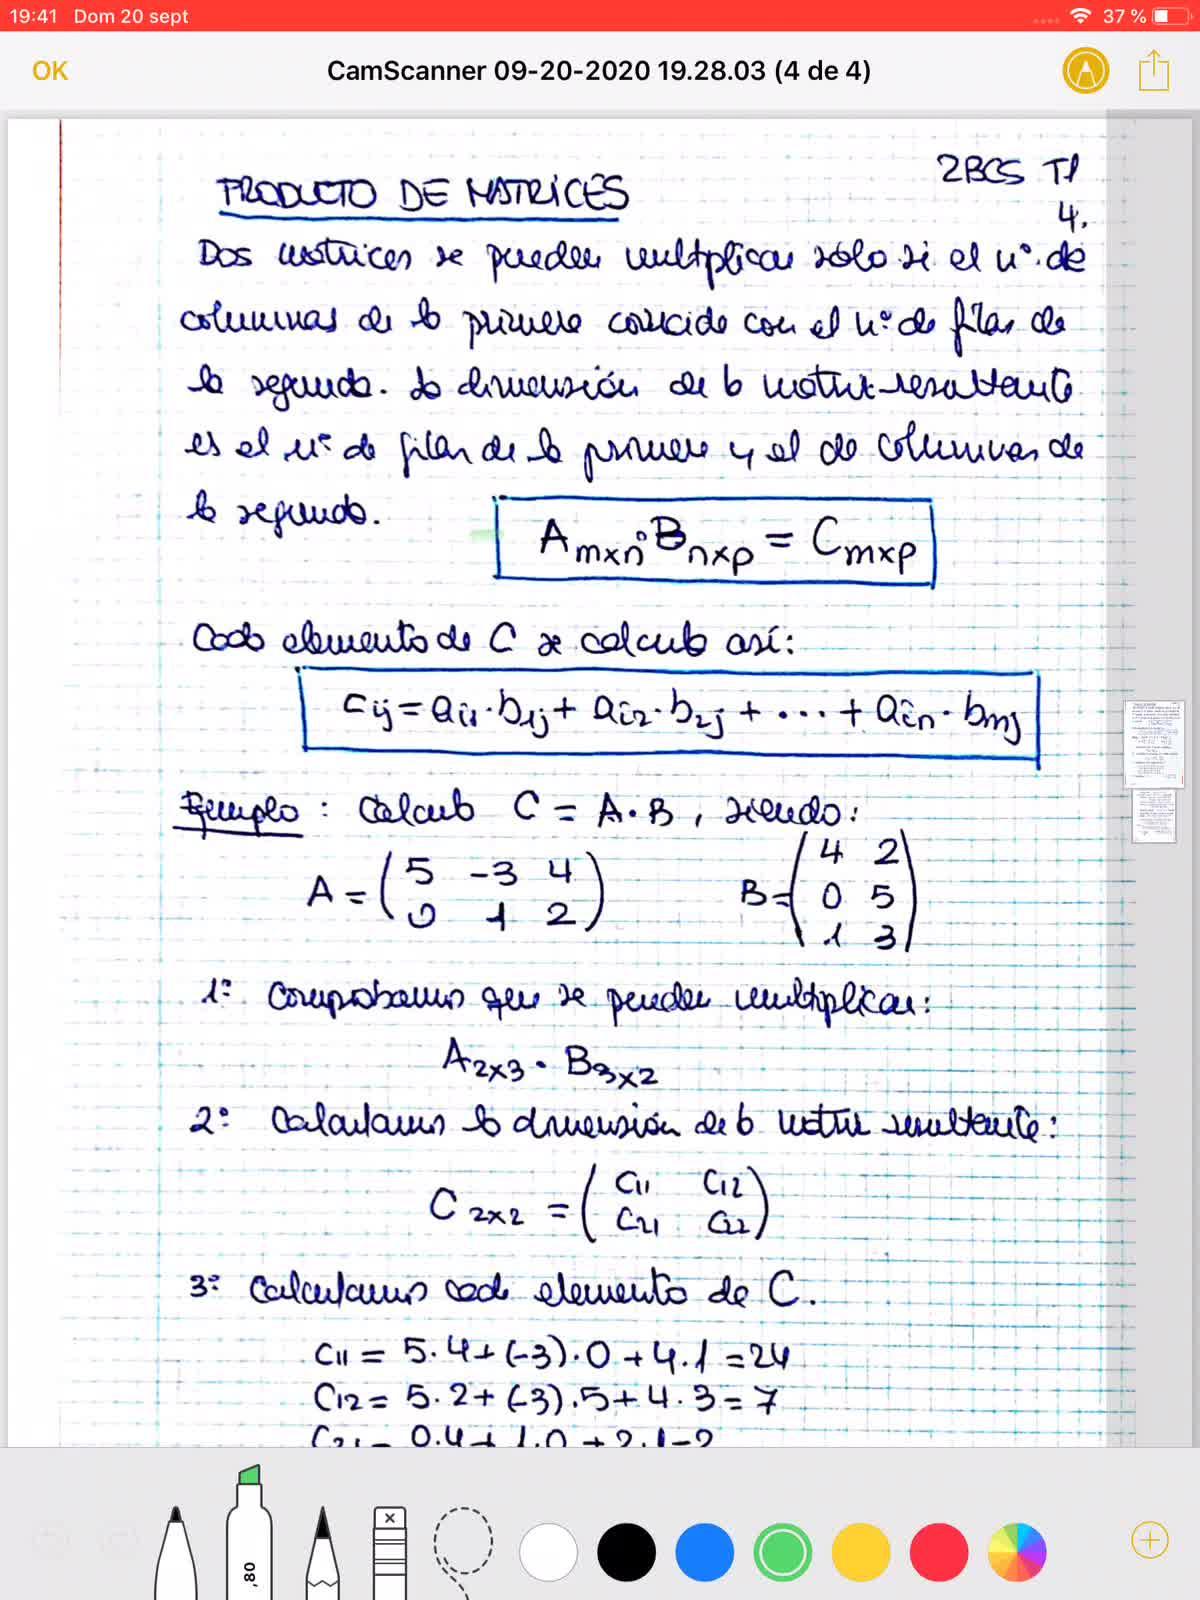 19:41 Dom 20 sept 37 %
OK CamScanner 09-20-2020 19.28.03 (4 de 4)
2BCS T1
4.
PRODUCTO DE MATRICES
Dos matrices se pueden multiplicar sólo si el nº. de
columnas de la primera coincide con el nº de filas de
la segunda. La dimensión de la matriz resultante
es el nº de filas de la primera y el de columnas de
la segunda.
A_{m×n} · B_{n×p} = C_{m×p}
Cada elemento de C se calcula así:
c_{ij} = a_{i1} · b_{1j} + a_{i2} · b_{2j} + ... + a_{in} · b_{mj}
Ejemplo: Calcula C = A · B, siendo:
A = ( 5 -3 4 ) B = ( 4 2 )
( 0 1 2 ) ( 0 5 )
( 1 3 )
1º Comprobamos que se pueden multiplicar:
A_{2×3} · B_{3×2}
2º Calculamos la dimensión de la matriz resultante:
C_{2×2} = ( C_{11} C_{12} )
( C_{21} C_{22} )
3º Calculamos cada elemento de C.
C_{11} = 5·4 + (-3)·0 + 4·1 = 24
C_{12} = 5·2 + (-3)·5 + 4·3 = 7
C_{21} = 0·4 + 1·0 + 2·1 = 2
,80